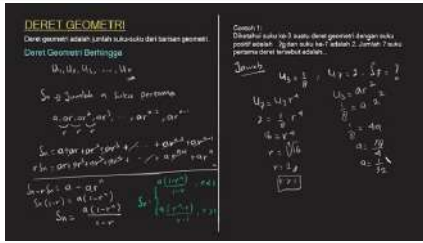 DERET GEOMETRI
Deret geometri adalah jumlah suku-suku dari barisan geometri.
Deret Geometri Berhingga
U₁, U₂, U₃, ..., Uₙ
Sₙ = Jumlah n suku pertama
a, ar, ar², ar³, ... arⁿ⁻¹
r r r
Sₙ = a + ar + ar² + ar³ + ... + arⁿ⁻¹
Sₙ - rSₙ = a - arⁿ
Sₙ(1-r) = a(1-rⁿ)
Sₙ = a(1-rⁿ)/1-r
Contoh 1:
Diketahui suku ke-3 suatu deret geometri dengan suku
positif adalah dan suku ke-7 adalah 2. Jumlah 7 suku
pertama deret tersebut adalah...
Jawab
U₃ = 1/8, U₇ = 2. S₇ = ?
U₇ = U₃ r⁴
2 = 1/8 r⁴
16 = r⁴
r = 2
U₃ = ar²
1/8 = a 2²
1/8 = 4a
a = 1/32